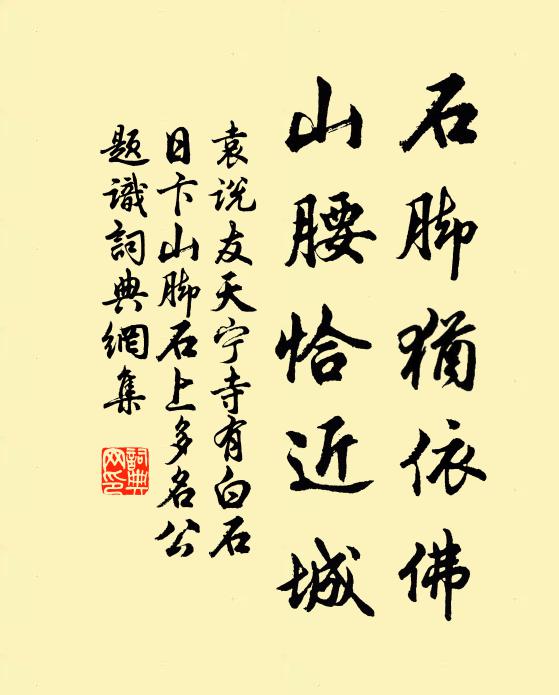 石脚猶依佛
山腰恰近城
袁说友天宁寺有白石
日卞山脚石上多名公
题識詞典網集
詞典
网印